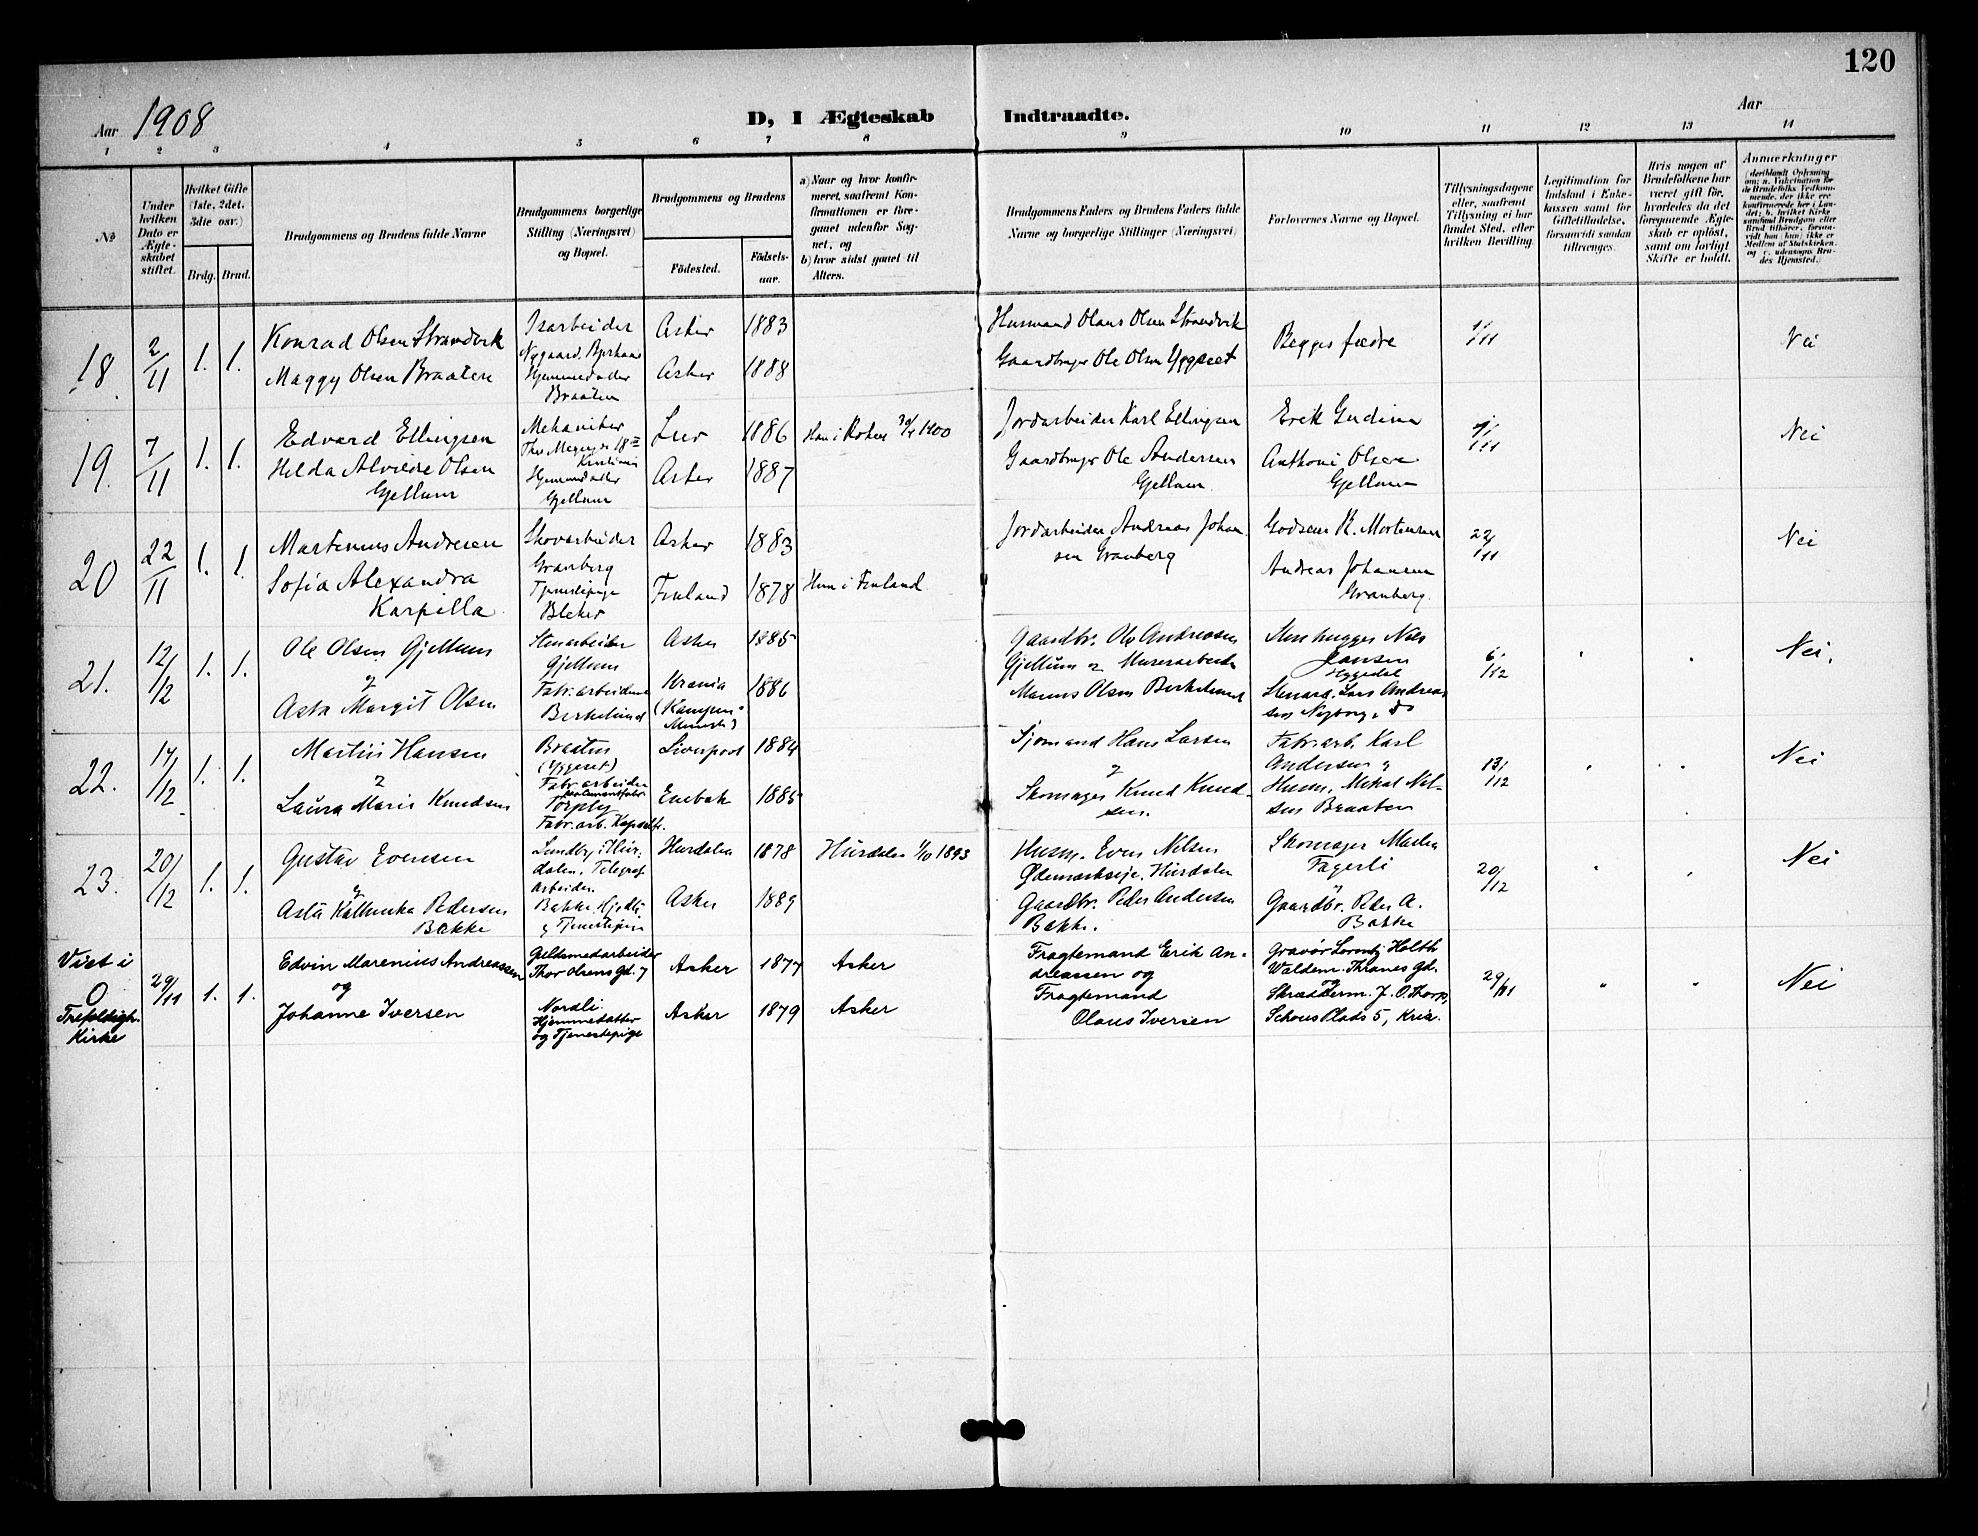 120
Aar 1908
D, I Ægteskab Indtraadte.
Aar
1 2 3 4 5 6 7 8 9 10 11 12 13 14
№
Under hvilken Dato er Ægteskabet stiftet.
Hvilket Gifte (1ste, 2det, 3die osv.)
Brdg. Brud.
Brudgommens og Brudens fulde Navne
Brudgommens borgerlige Stilling (Næringsvei) og Bopæl.
Brudgommens og Brudens
Födested.
Födselsaar.
a) Naar og hvor konfirmeret, saafremt Konfirmationen er foregaaet udenfor Sognet, og
b) hvor sidst gaaet til Alters.
Brudgommens Faders og Brudens Faders fulde Navne og borgerlige Stillinger (Næringsvei)
Forlovernes Navne og Bopæl.
Tillysningsdagene eller, saafremt Tillysning ei har fundet Sted, efter hvilken Bevilling.
Legitimation for Indskud i Enkekassen samt for Giftetilladelse, forsaavidt saadan tiltrænges.
Hvis nogen af Brudefolkene har været gift för, hvorledes da det foregaaende Ægteskab er oplöst, samt om lovligt Skifte er holdt.
Anmerkninger
18. 2/11 1. 1.
Konrad Olsen Strandvik
Maggy Olsen Braaten
Isarbeider
Nygaard,
Hjemmedatter
Braaten
Asker 1883
Asker 1888
Husmand Olaus Olsen Strandvik
Gaardbruger Ole Olsen Yggeset
Begges fædre
1/11
Nei
19. 7/11 1. 1.
Edvard Ellingsen
Helda Alvilde Olsen
Gjellum
Mekaniker
Thv. Meyersgd 18
Kristiania
Hjemmedatter
Gjellum
Lier 1886
Asker 1887
Han i Røken 1900
Jordarbeider Karl Ellingsen
Gaardbruger Ole Andersen
Gjellum
Erik
Anthoni Olsen
Gjellum
1/11
Nei
20 22/11 1. 1.
Martinius Andresen
Sofia Alexandra
Karpilla
Skovarbeider
Granberg
Tjenestepige
Bleker
Asker 1883
Finland 1878
Hun i Finland
Jordarbeider Andreas Johan
sen Granberg
Godseier K. Mortensen
Andreas Johansen
Granberg.
22/11
Nei
21. 12/12 1. 1.
Ole Olsen Gjellum
&
Asta Margit Olsen
Stenarbeider
Gjellum
Fabr.arbeiderske
Birkelund
Asker 1885
Krania 1886
(Kampens
Menighed)
Gaardbr. Ole Andreasen
Gjellum & Murerarbeider
Marius Olsen Birkelund
Stenhugger Nils
Jansen
Yggedal
Stenarb. Lars Andreas
sen Nyborg, do
6/12
Nei.
22. 17/12 1. 1.
Martin Hansen
&
Laura Marie Knudsen
Braaten
(Yggeset)
Fabr.arbeider
Torpby
Fabr.arb. Kapselfr.
Liverpool 1884
Enebak 1885
Sjømand Hans Larsen
&
Skomager Knud Knud-
sen.
Fabr.arb. Karl
Andersen &
Husm. Mikal Nil-
sen Braaten
13/12
Nei
23. 20/12 1. 1.
Gustav Evensen
&
Asta Kathinka Pedersen
Bakke
Lundby i Hur-
dalen, Telegraf
arbeider.
Bakke, Hjemdtr.
& Tjenestepige
Hurdalen 1878
Asker 1889
Hurdalen 1/10 1893
Husm. Even Nilsen
Ødemarkseie, Hurdalen
Gaardbr. Peder Andersen
Bakke.
Skomager Martin
Fagerli
&
Gaardbr. Peder A.
Bakke
20/12
Nei
Viet i
Trefoldigh.
kirke
29/11 1. 1.
Edvin Marenius Andreassen
og
Johanne Iversen
Guldsmedarbeider
Thor Olsens Gd. 7
Nordli
Hjemmedatter
og Tjenestepige
Asker 1877 Asker
Asker 1879 Asker
Fragtemand Erik An-
dreassen og
Fragtemand
Olaus Iversen
Gravør Lorentz Holth
Waldem. Thranes gd.
og
Skræderm. J. O. Thorp,
Schous Plads 5, Kria.
29/11
Nei